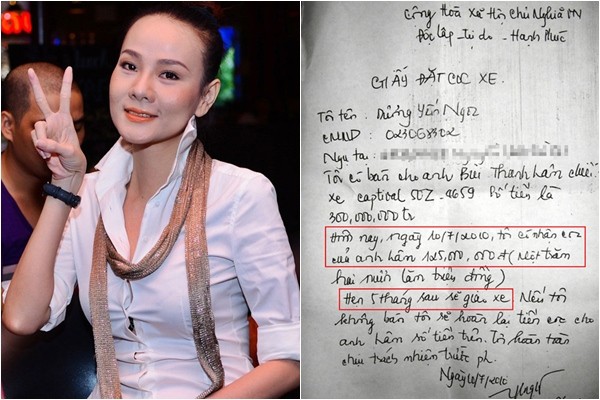 Cộng Hoà Xã Hội Chủ Nghĩa VN
Độc Lập - Tự do - Hạnh Phúc
GIẤY ĐẶT CỌC XE
Tôi tên : Dương Yến Ngọc
CMND : 023068302
Ngụ tại :
Tôi có bán cho anh Bùi Thanh Hân chiếc
xe captival 50Z - 9659 số tiền là
300,000,000 tr
Hôm nay, ngày 10/7/2010, tôi có nhận cọc
của anh Hân 125,000,000 đ (Một trăm
hai mươi lăm triệu đồng)
Hẹn 5 tháng sau sẽ giao xe. Nếu tôi
không bán tôi sẽ hoàn lại tiền cọc cho
anh Hân số tiền trên. Tôi hoàn toàn
chịu trách nhiệm trước pl.
Ngày 10/7/2010